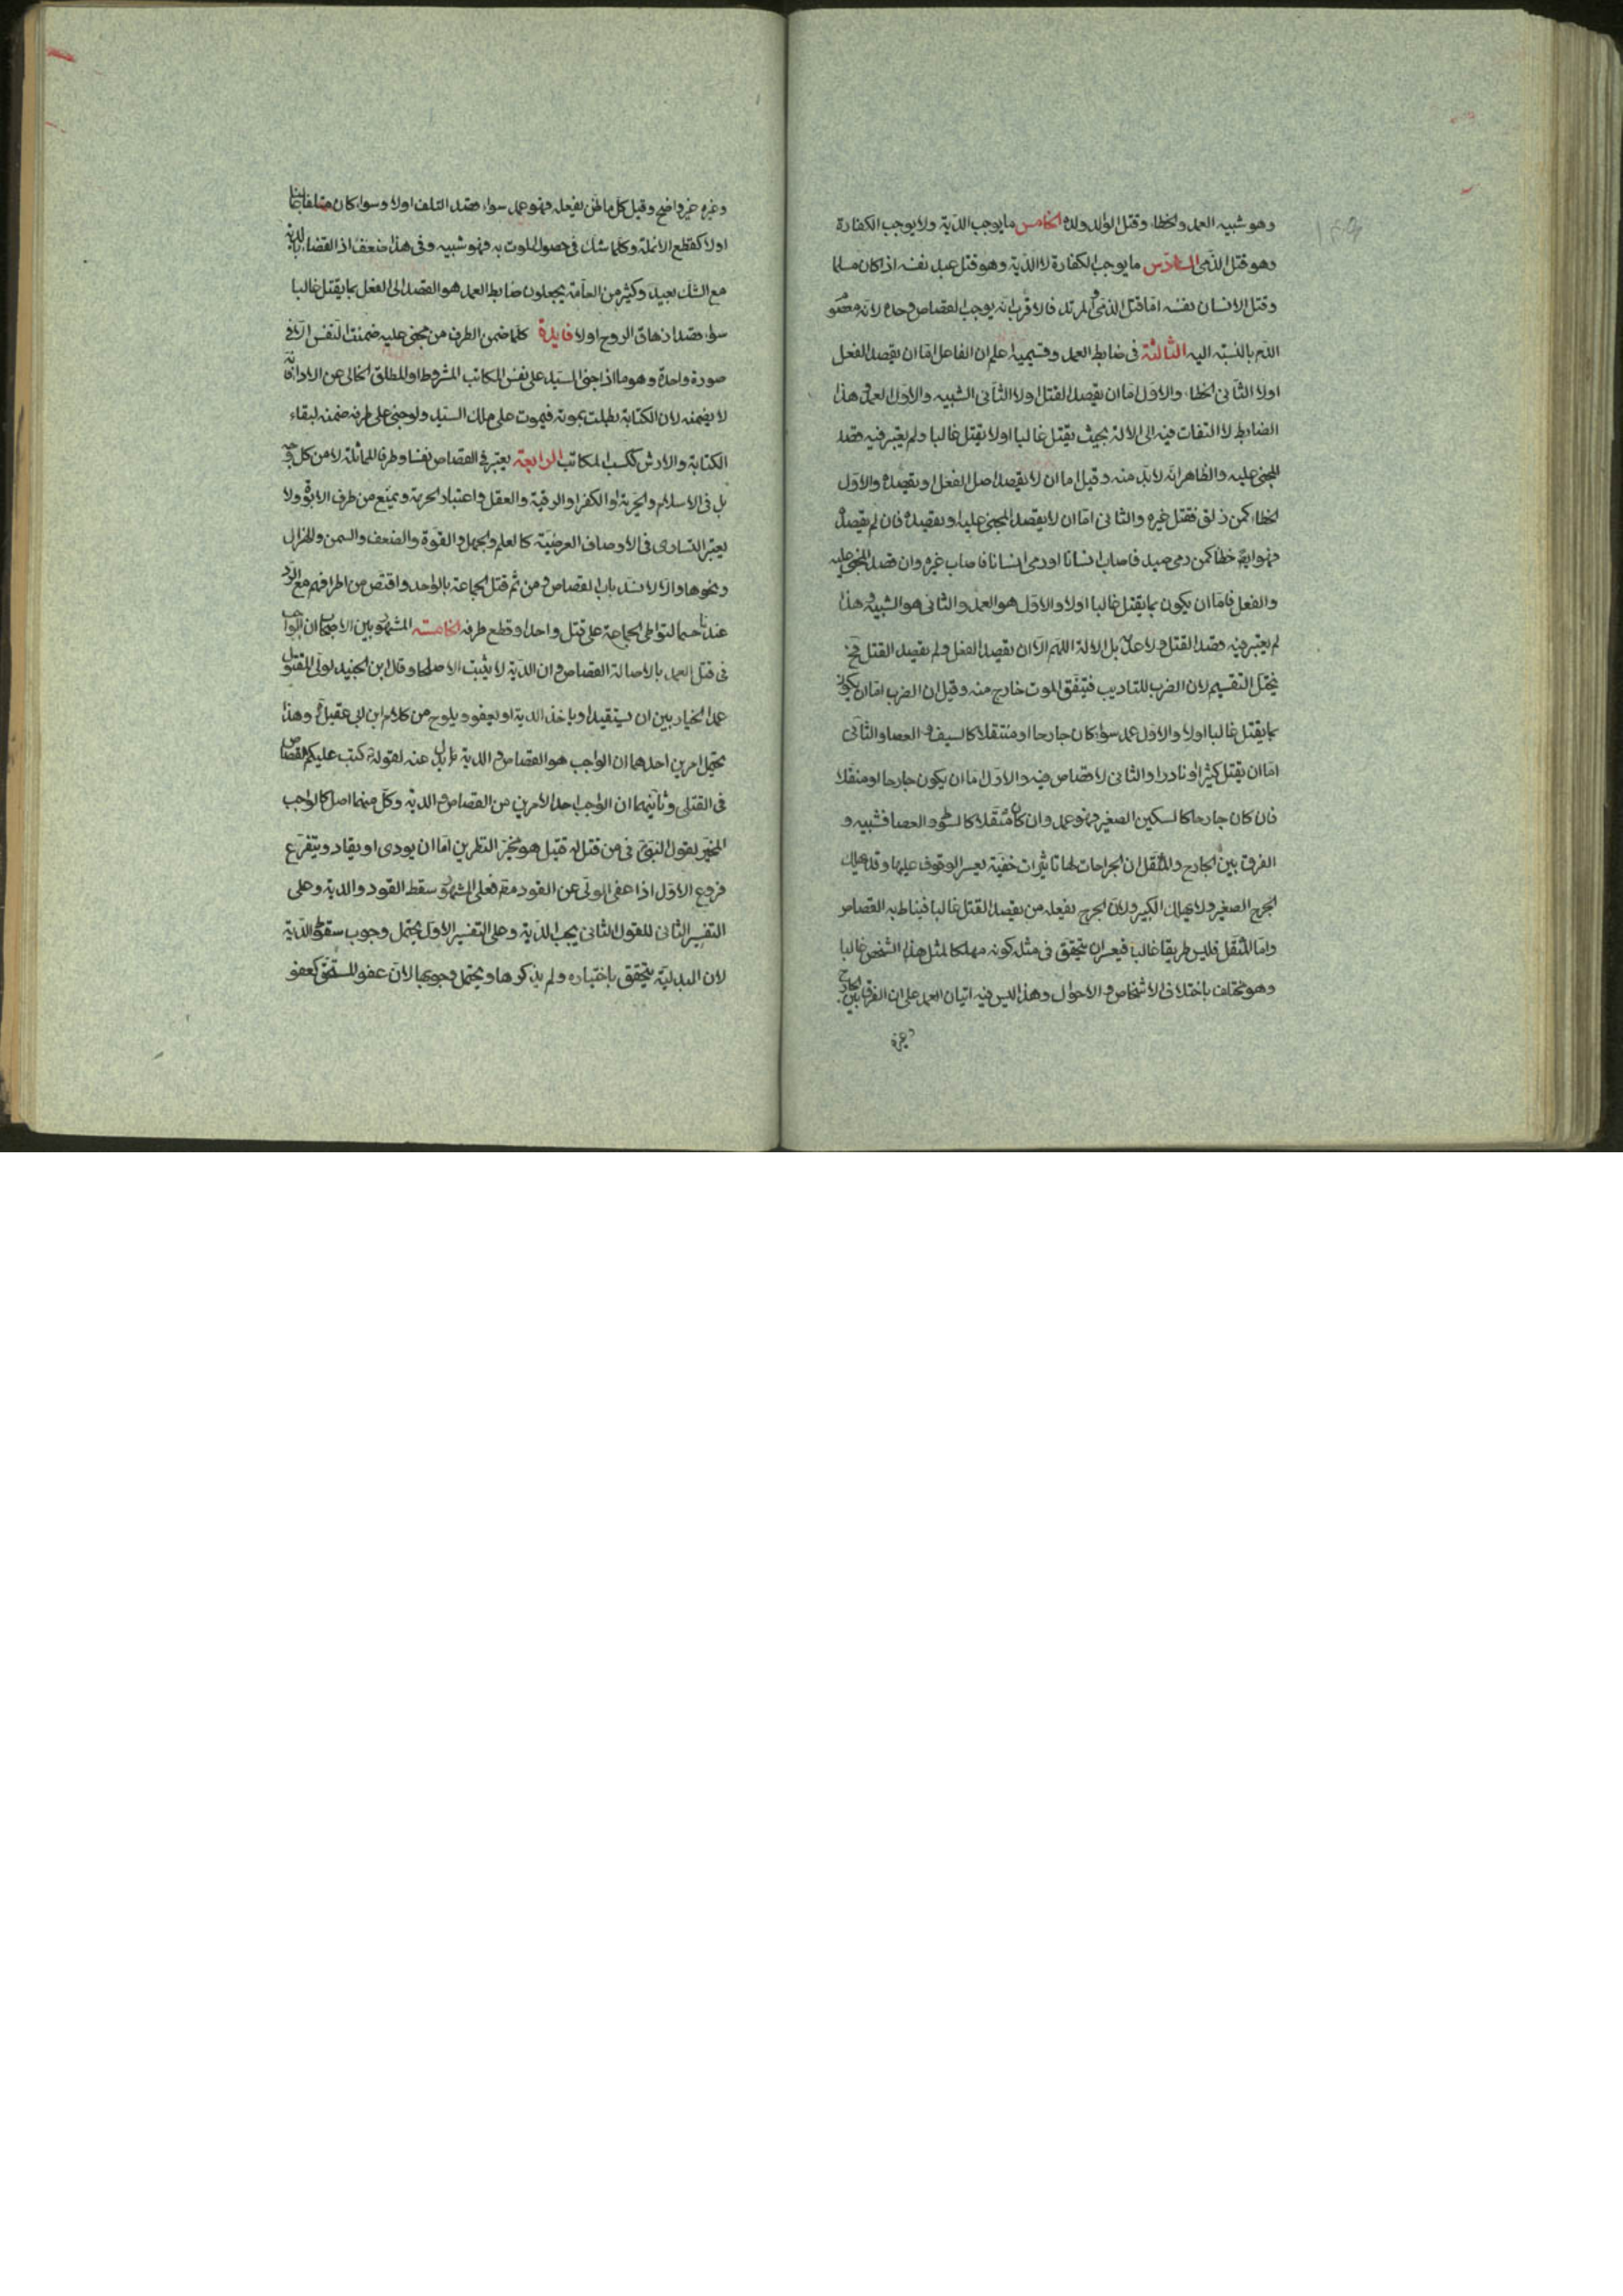 وهو شبيه العمد والخطاء وقتل الوالد ولده الخامس ما يوجب الدية ولا يوجب الكفارة
وهو قتل الذمى السادس ما يوجب الكفارة لا الدية وهو قتل عبد نفسه اذا كان مسلما
وقتل الانسان نفسه اما قتل الذمى المرتد فالاقرب انه يوجب القصاص وحده لانه محقو
الدم بالنسبة اليه الثالثة فى ضابط العمد وقسيميه اعلم ان الفاعل اما ان يقصد الفعل
اولا الثانى الخطاء والاول اما ان يقصد القتل اولا الثانى الشبيه والاول العمد وهذا
الضابط لا التفات فيه الى الالة بحيث يقتل غالبا اولا يقتل غالبا ولم يعتبر فيه قصد
المجنى عليه والظاهر انه لا بد منه وقيل اما ان لا يقصد اصل الفعل او يقصده والاول
الخطاء كمن زلق فقتل غيره والثانى اما ان لا يقصد المجنى عليه او يقصده فان لم يقصده
فهو ايضا خطا كمن رمى صيد فاصاب انسانا او رمى انسانا فاصاب غيره وان قصد المجنى عليه
والفعل فاما ان يكون بما يقتل غالبا اولا والاول هو العمد والثانى هو الشبيه وهذا
لم يعتبر فيه قصد القتل ولا عدمه بل الالة اللهم الا ان يقصد الفعل ولم يقصد القتل فح
يختل التقسيم لان الضرب للتاديب فيتفق الموت خارج منه وقيل ان الضرب اما ان يكون
بما يقتل غالبا اولا والاول عمد سواء كان جارحا او مثقلا كالسيف و العصا والثانى
اما ان يقتل كثيرا او نادرا والثانى لا قصاص فيه والاول اما ان يكون جارحا او مثقلا
فان كان جارحا كالسكين الصغير فهو عمد وان كان مثقلا كالسوط والعصا فشبيه و
الفرق بين الجارح والمثقل ان الجراحات لها تاثيرات خفية يعسر الوقوف عليها وقد يهلك
الجرح الصغير ولا يهلك الكبير ولان الجرح يفعله من يقصد القتل غالبا فيناط به القصاص
واما المثقل فليس طريقا غالبا فيعسر ان يتحقق فى مثله كونه مهلكا لمثل هذا الشخص غالبا
وهو مختلف باختلاف الاشخاص و الاحوال وهذا ليس فيه اتيان العمد على ان الفرق بين الجارح
وغيره
وغيره غير واضح وقيل كل ما ظن بفعله فهو عمد سواء قصد التلف اولا وسواء كان متلفا غالبا
اولا كقطع الانملة وكلما شك فى حصول الموت به فهو شبيه وفى هذا ضعف اذ القضاء بالدية
مع الشك بعيد وكثير من العامة يجعلون ضابط العمد هو القصد الى الفعل بما يقتل غالبا
سواء قصد ازهاق الروح اولا فايدة كلما ضمن الطرف من مجنى عليه ضمنت النفس الا فى
صورة واحدة وهو ما اذا جنى السيد على نفس المكاتب المشروط او المطلق الخالى عن الاداء فانه
لا يضمنه لان الكتابة بطلت بموته فيموت على ملك السيد ولو جنى على طرفه ضمنه لبقاء
الكتابة والارش ككسب المكاتب الرابعة يعتبر فى القصاص نفسا وطرفا المماثلة لا من كل وجه
بل فى الاسلام والحرية او الكفر او الرقية والعقل واعتبار الحرية ويمنع من طرف الابوة ولا
يعتبر التساوى فى الاوصاف العرضية كالعلم والجهل والقوة والضعف والسمن والهزال
ونحوها والا لانسد باب القصاص ومن ثم قتل الجماعة بالواحد واقتص من اطرافهم مع الرد
عندنا حسما لتواطى الجماعة على قتل واحد او قطع طرفه الخامسة المشهور بين الاصحاب ان الواجب
فى قتل العمد بالاصالة القصاص وان الدية لا يثبت الا صلحا وقال ابن الجنيد لولى المقتول
عمدا الخيار بين ان يستقيد او ياخذ الدية او يعفو ويلوح من كلام ابن ابى عقيل وهذا
يحتمل امرين احدهما ان الواجب هو القصاص و الدية بدل عنه لقوله تع كتب عليكم القصاص
فى القتلى وثانيهما ان الواجب احد الامرين من القصاص و الدية وكل منهما اصل كالواجب
المخير لقول النبى فى من قتل له قتيل هو مخير النظرين اما ان يودى او يقاد ويتفرع
فروع الاول اذا عفى الولى عن القود مقه فعلى المشهور سقط القود والدية وعلى
التفسير الثانى للقول الثانى يجب الدية وعلى التفسير الاول يحتمل وجوب سقوط الدية
لان البدلية يتحقق باختياره ولم يذكرها ويحتمل وجوبها لان عفو المستحق كعفو